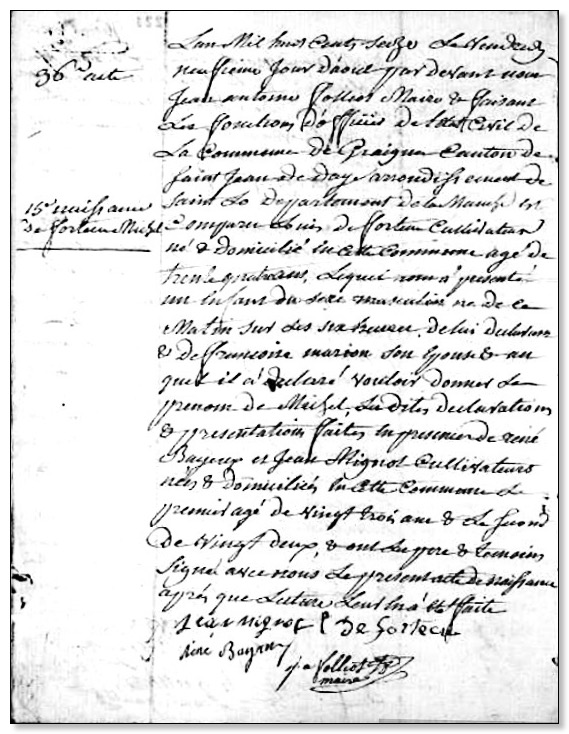 36e acte
15e naissance
de fortecu Michel
L'an Mil huit Cents seize Le Vendredi
neufvieme Jour d'aout par devant nous
Jean antoine folliot Maire & faisant
Les fonctions d'officier de l'etat Civil de
La Commune de Graignes Canton de
Saint Jean de Daye arrondissement de
Saint Lo Departement de la Manche est
Comparu Louis de fortecu Cultivateur
né & domicilié en cette Commune agé de
trente quatre ans, Lequel nous a presenté
un enfant du sexe masculin né de ce
Matin sur Les six heures, de lui declarant
& de francoise marion son Epouse & au
quel il a declaré vouloir donner Le
prenom de Michel, Les dites declarations
& presentations faites en presence de rené
Bayeux et Jean Mignot Cultivateurs
nées & domiciliés en cette Commune Le
premier agé de Vingt trois ans & Le second
De Vingt deux, & ont Le pere & temoins
Signé avec nous Le present acte de naissance
aprés que Lecture Leur en a eté faite
Jean mignot L De Fortecu
rené Bayeux
j a folliot
maire